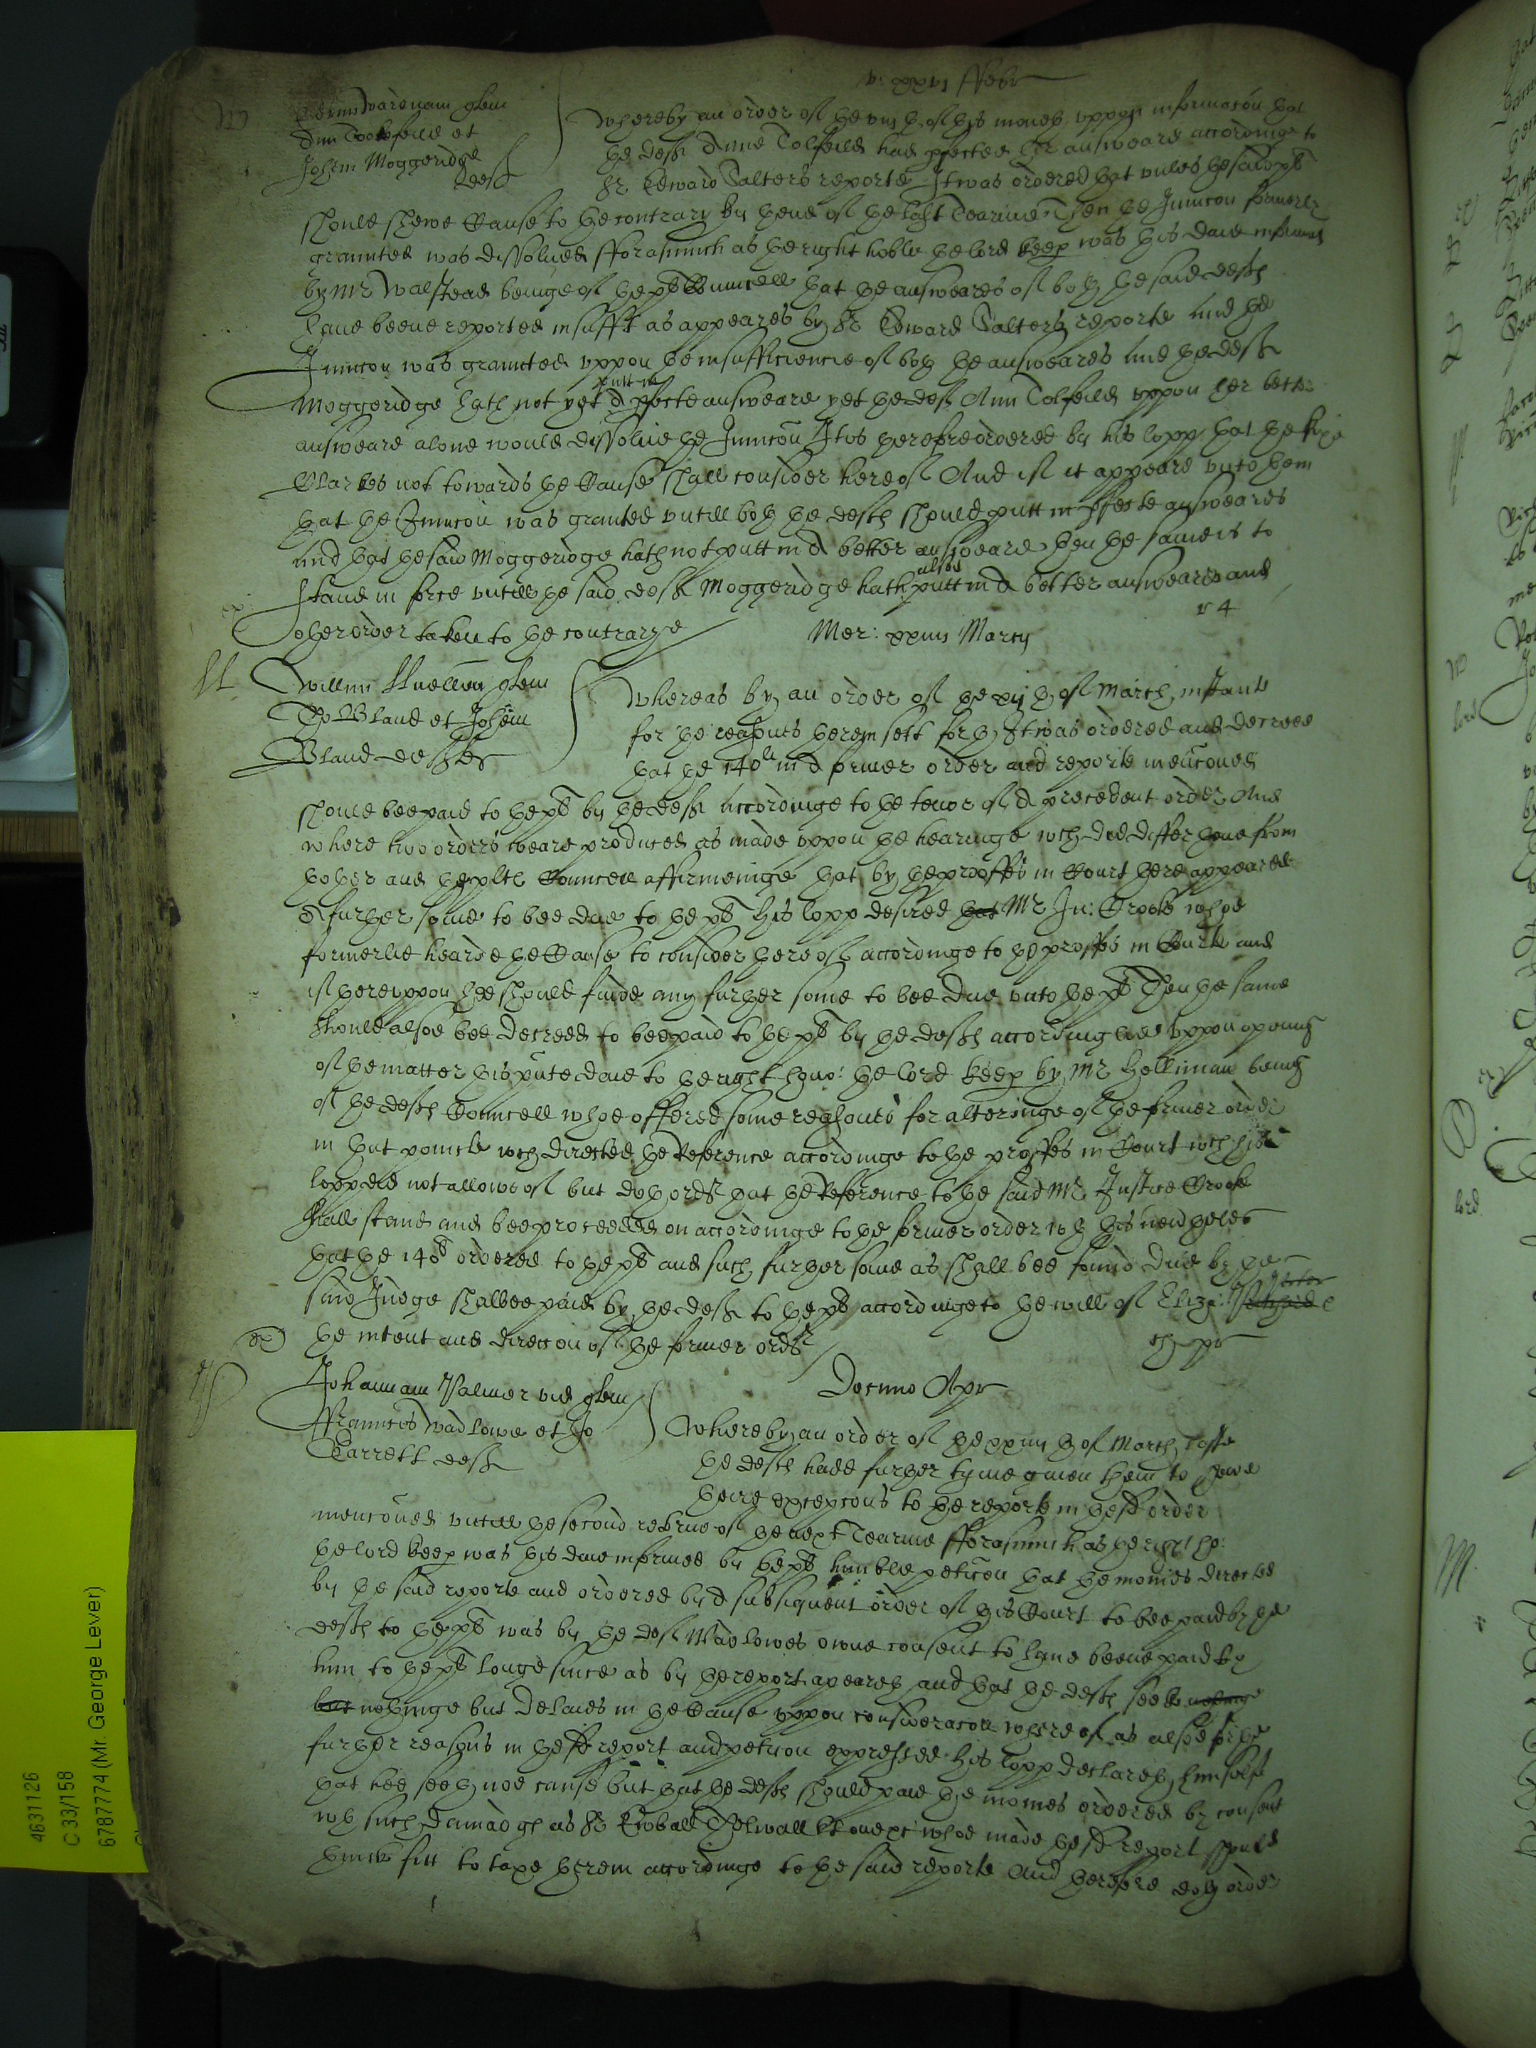 v: xxvi ffebr
Warenam quer
Ann Tolfeild et
Johem Moggeridge
deft
Whereby an order of the viijth of this moneth uppon informacon that
the deft Anne Tolfeild had pfected her answeare accordinge to
Sr Edward Salters reporte It was ordered that unles the said plt
should shewe Cause to the contrary by thend of the last Tearme Then the Iniuncon formerly
graunted was dissolved fforasmuch as the right hoble the lord keep was this daie informed
by Mr Walstead beinge of the plts Councell that the answeares of both the said defts
have beene reported insuffict as appeares by Sr Edward Salters reporte And the
Iniuncon was graunted uppon the insufficiencie of both the answeares And the deft
Moggeridge hath not yet putt in a pfecte answeare yet the deft Ann Tolfeild uppon her better
answeare alone would dissolve the Iniuncon It is therefore ordered by his lopp that the Sixe
Clarkes not towards the Cause shall consider hereof And if it appeare unto them
that the Iniuncon was granted untill both the defts should putt in pfecte answeares
And that the said Moggeridge hath not putt in a better answeare then the same is to
stand in force untill the said deft Moggeridge hath alsoe putt in a better answeare and
other order taken to the contrarye
v 4
Mer: xxiiij Marcij
Willm quer
Tho Bland et Johem
Bland deftes
Whereas by an order of the xijth of March instant
for the reasons therein sett forth It was ordered and decreed
that the 140li in a former order and reporte menconed
should bee paid to the plt by the deft Accordinge to the tenor of a precedent order And
where two orders weare produced as made uppon the hearinge wch did differ thone from
thother and the plts Councell affirmeinge that by the prooffes in Court there appeared
a further some to bee due to the plt His lopp desired that Mr Ju: Crooke whoe
formerlie hearde the Cause to consider thereof accordinge to the proffes in Courte and
if thereuppon hee should finde any further some to bee due unto the plt Then the same
should alsoe bee decreed to bee paid to the plt by the defts accordinglie uppon openinge
of the matter this pnte daie to the right honor: the lord keep by Mr Holliman beinge
of the defts Councell whoe offered some reasons for alteringe of the former order
in that pointe wch directed the Reference accordinge to the proffes in Court wch his
lopp did not allowe of but doth order that the Reference to the said Mr Justice Crooke
shall stand and bee proceeded on accordinge to the former order
that the 140li ordered to the plt and such further some as shall bee found due by the
said Judge shalbee paid by the deft to the plt accordinge to the will of Eliza:
the intent and direccon of the former order
Decimo Apr
Johannam Palmer vid quer
ffrancis Wadlowe et Jo
Garrett deft
Whereby an order of the xxiiijth of March laste
the defts hadd further tyme given them to shewe
theire excepcons to the reporte in the sd order
menconed untill the second retorne of the next Tearme fforasmuch as the right ho:
the lord keep was this daie informed by the plts humble peticon that the monies directed
by the said reporte and ordered by a subsequent order of this Court to bee paid by the
defts to the plt was by the deft Wadlowes owne consent to have beene paid by
him to the plt longe since as by the report apeareth and that the defts seeke nothinge
but nothinge but delaies in the Cause uppon consideracon whereof as alsoe for the
further reasons in the sd report and peticon expressed his lopp declareth himselfe
that hee seeth noe cause but that the defts should paie the monies ordered by consent
wth such damadges as Sr Eubull Thelwall knt whoe made the sd report should
thinke fitt to taxe therein accordinge to the said reporte And therefore doth order
4631126
C 33/158
6787774 (Mr. George Lever)